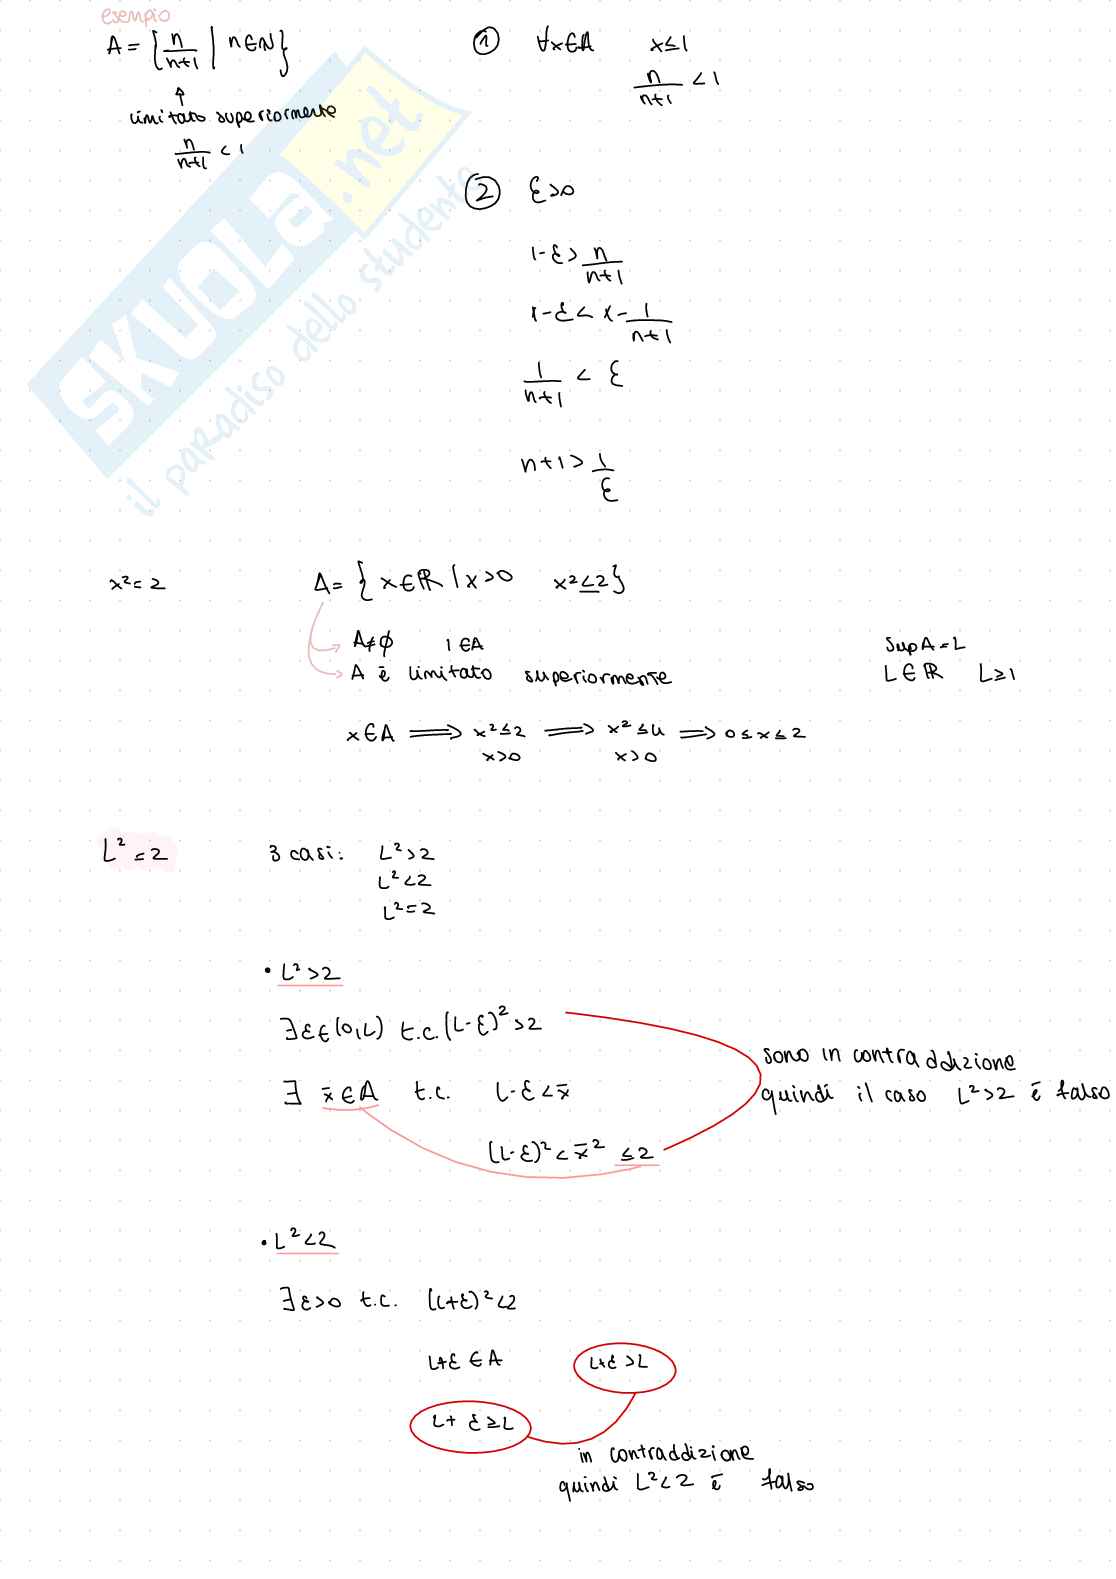 esempio
A = { n/(n+1) | n∈N }
↑
limitato superiormente
n/(n+1) < 1
① ∀x∈A x≤1
n/(n+1) < 1
② ε>0
1-ε > n/(n+1)
1-ε < 1 - 1/(n+1)
1/(n+1) < ε
n+1 > 1/ε
SKUOLA.net
il paradiso dello studente
x² = 2
A = { x∈ℝ | x>0 x²≤2 }
A≠∅ 1∈A
A è limitato superiormente
Sup A = L
L∈ℝ L≥1
x∈A ⟹ x²≤2 ⟹ x²≤4 ⟹ 0≤x≤2
x>0 x>0
L² = 2
3 casi: L²>2
L²<2
L²=2
• L²>2
∃ε∈(0,L) t.c. (L-ε)²>2
∃ x̄∈A t.c. L-ε<x̄
(L-ε)² < x̄² ≤2
sono in contraddizione
quindi il caso L²>2 è falso
• L²<2
∃ε>0 t.c. (L+ε)²<2
L+ε ∈A L+ε >L
L+ ε≥L
in contraddizione
quindi L²<2 è falso